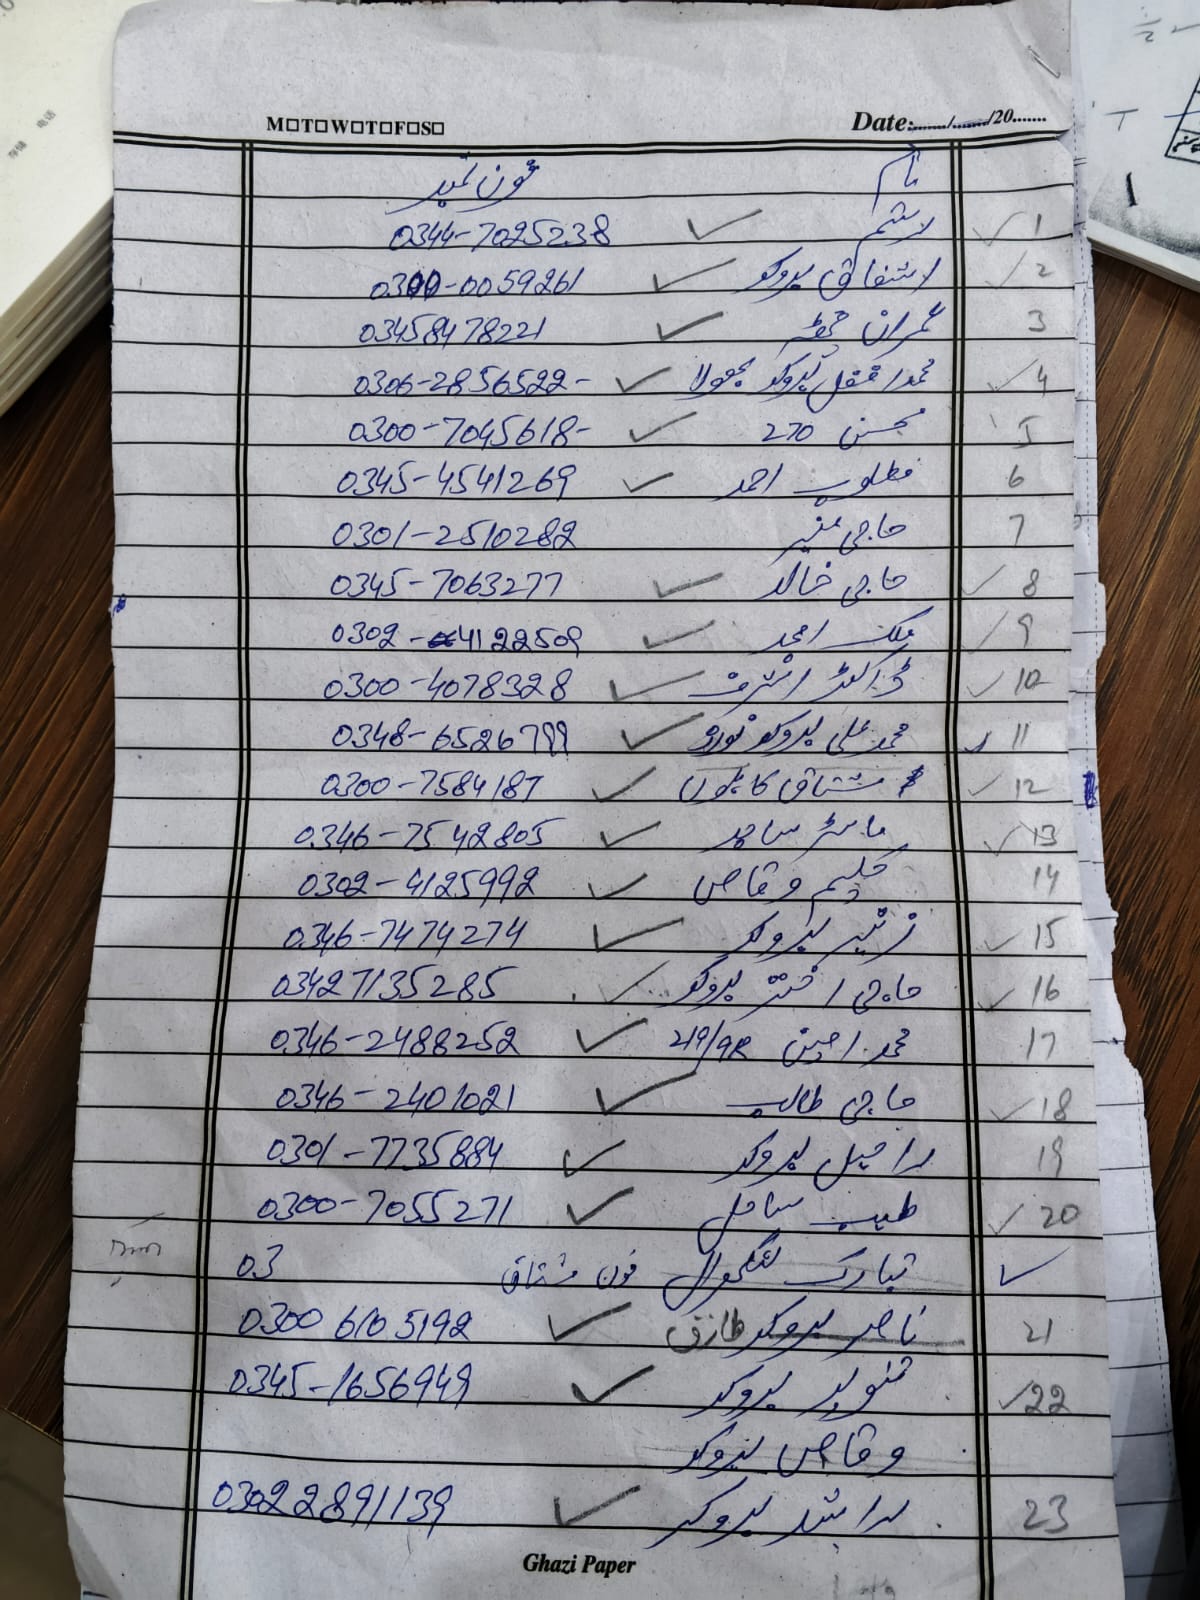 M□T□W□T□F□S□ Date:......./......./20.......
نام فون نمبر
1 ✓ ✓ 0344-7025238
2 ✓ اشفاق بروکر ✓ 0300-0059261
3 عمران ✓ 03458478221
4 ✓ محمد افضل بروکر ✓ 0306-2856522-
5 محسن 270 ✓ 0300-7045618-
6 مطلوب احمد ✓ 0345-4541269
7 حاجی منیر 0301-2510282
8 ✓ حاجی خالد ✓ 0345-7063277
9 ✓ ملک امجد ✓ 0302-4122509
10 ✓ ڈاکٹر اشرف ✓ 0300-4078328
11 ✓ محمد علی بروکر ✓ 0348-6526799
12 ✓ مشتاق کاہلوں ✓ 0300-7584187
13 ✓ ماسٹر ساجد ✓ 0346-7542805
14 حکیم وقاص ✓ 0302-4125992
15 ✓ زبیر بروکر ✓ 0346-7474274
16 ✓ حاجی اختر بروکر ✓ 03427135285
17 محمد امین 219/9R ✓ 0346-2488252
18 ✓ حاجی طالب ✓ 0346-2401021
19 راحیل بروکر ✓ 0301-7735884
20 ✓ طیب ساحل ✓ 0300-7055271
✓ تبارک فون مشتاق 03
21 ناصر بروکر طارق ✓ 0300 6105192
22 ✓ تنویر بروکر ✓ 0345-1656949
وقاص بروکر
23 راشد بروکر ✓ 03022891139
Ghazi Paper